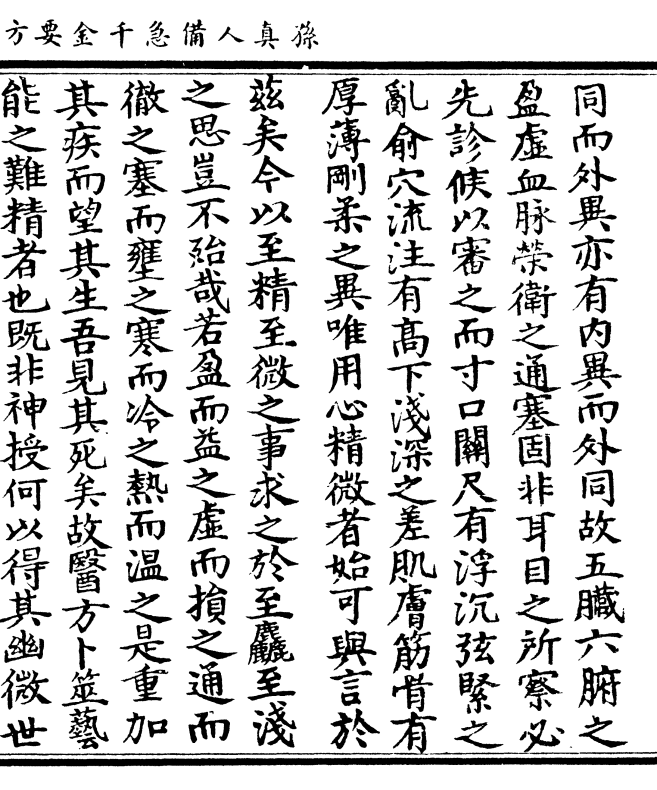 孫真人備急千金要方
同而外異亦有内異而外同故五臓六腑之
盈虚血脉榮衛之通塞固非耳目之所察必
先診候以審之而寸口關尺有浮沉弦緊之
亂俞穴流注有髙下淺深之差肌膚筋骨有
厚薄剛柔之異唯用心精微者始可與言於
兹矣今以至精至微之事求之於至麤至淺
之思豈不殆哉若盈而益之虚而損之通而
徹之塞而壅之寒而冷之熱而温之是重加
其疾而望其生吾見其死矣故醫方卜筮藝
能之難精者也既非神授何以得其幽微世